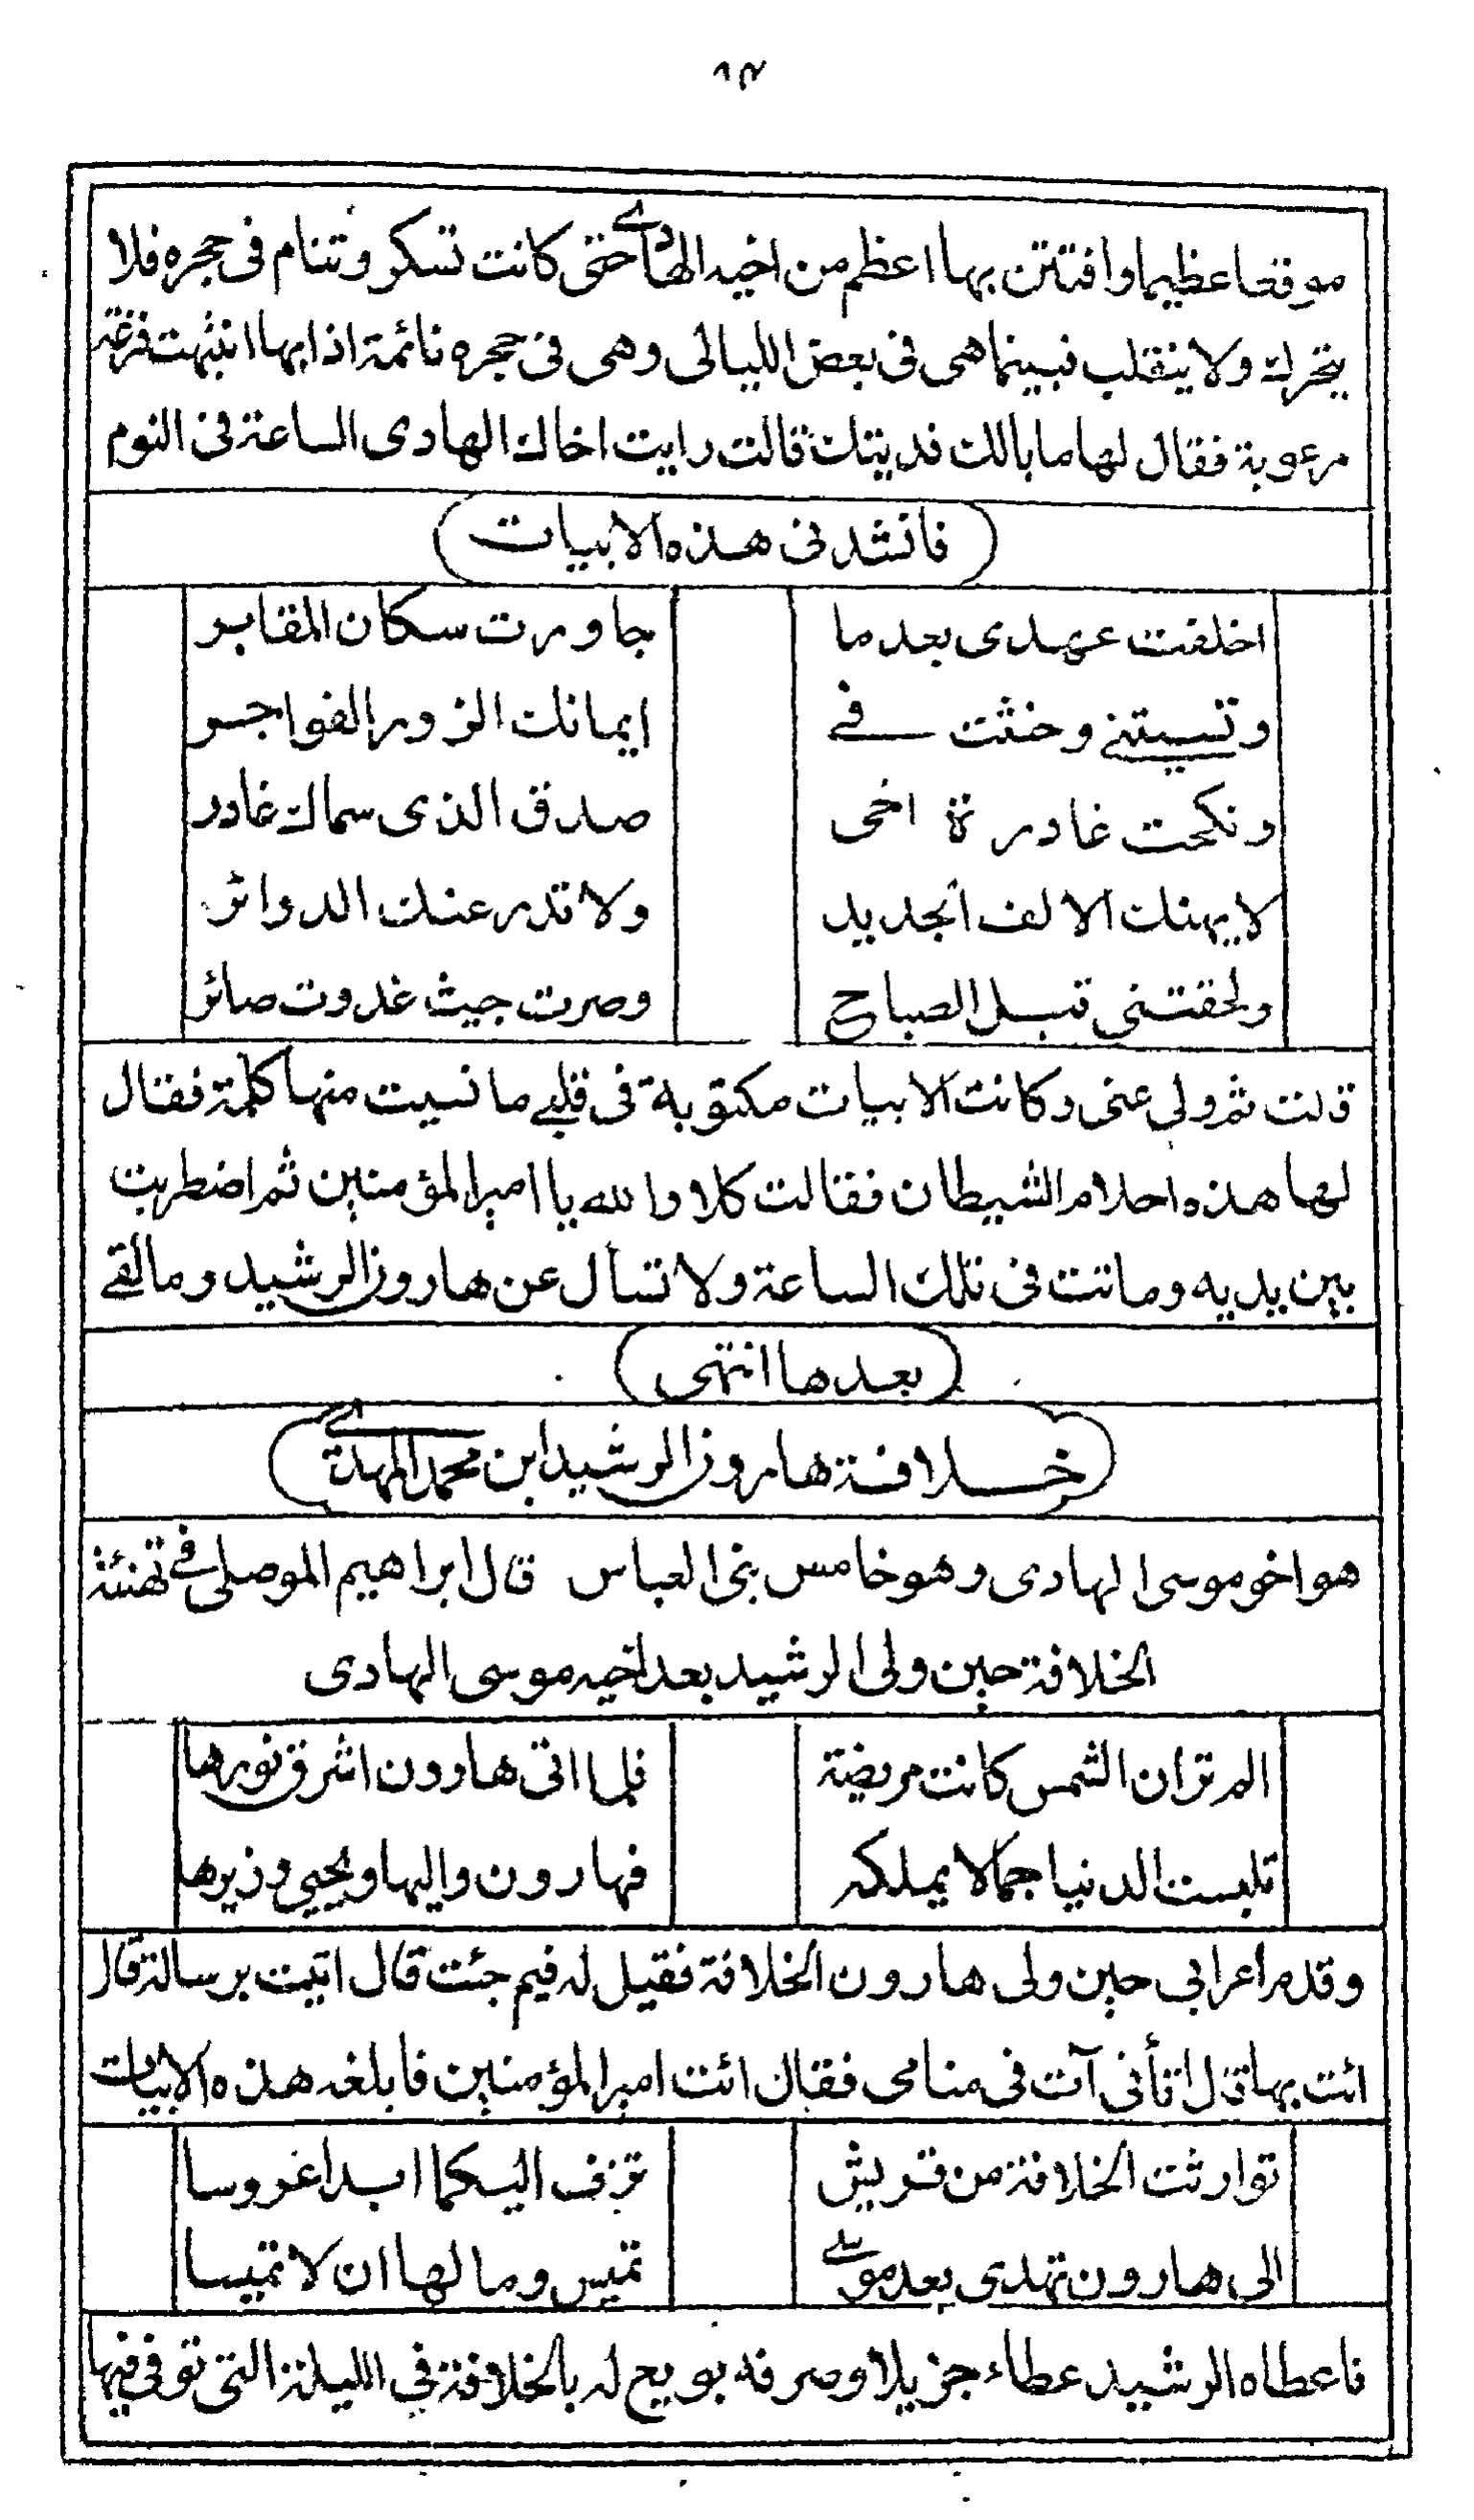 موقعا عظيما وافتتن بها اعظم من اخيه الهادى حتى كانت تسكر وتنام فى حجره فلا
يتحرك ولا ينقلب فبينما هى فى بعض الليالى وهى فى حجره نائمة اذا بها انتبهت فزعة
مرعوبة فقال لها ما بالك فديتك قالت رايت اخاك الهادى الساعة فى النوم
(فانشدنى هذه الابيات)
اخلفت عهدى بعد ما جاورت سكان المقابر
ونسيتنى وحنثت فى ايمانك الزور الفواجر
ونكحت غادرة اخى صدق الذى سماك غادر
لا يهنك الالف الجديد ولا تدر عنك الدوائر
ولحقتنى قبل الصباح وصرت حيث غدوت صائر
قالت ثم ولى عنى وكانت الابيات مكتوبة فى قلبى ما نسيت منها كلمة فقال
لها هذه احلام الشيطان فقالت كلا والله يا امير المؤمنين ثم اضطربت
بين يديه وماتت فى تلك الساعة ولا تسأل عن هارون الرشيد وما لقى
(بعدها انتهى)
(خلافة هارون الرشيد ابن محمد المهدى)
هو اخو موسى الهادى وهو خامس بنى العباس قال ابراهيم الموصلى فى تهنئة
الخلافة حين ولى الرشيد بعد اخيه موسى الهادى
الم تر ان الشمس كانت مريضة فلما اتى هارون اشرق نورها
تلبست الدنيا جمالا بملكه فهارون واليها ويحيى وزيرها
وقدم اعرابى حين ولى هارون الخلافة فقيل له فيم جئت قال اتيت برسالة قال
ائت بها قال اتأنى آت فى منامى فقال ائت امير المؤمنين فابلغه هذه الابيات
توارثت الخلافة من قريش تزف اليكما ابدا عروسا
الى هارون تهدى بعد موسى تميس وما لها ان لا تميسا
فاعطاه الرشيد عطاء جزيلا وصرفه بويع له بالخلافة فى الليلة التى توفى فيها